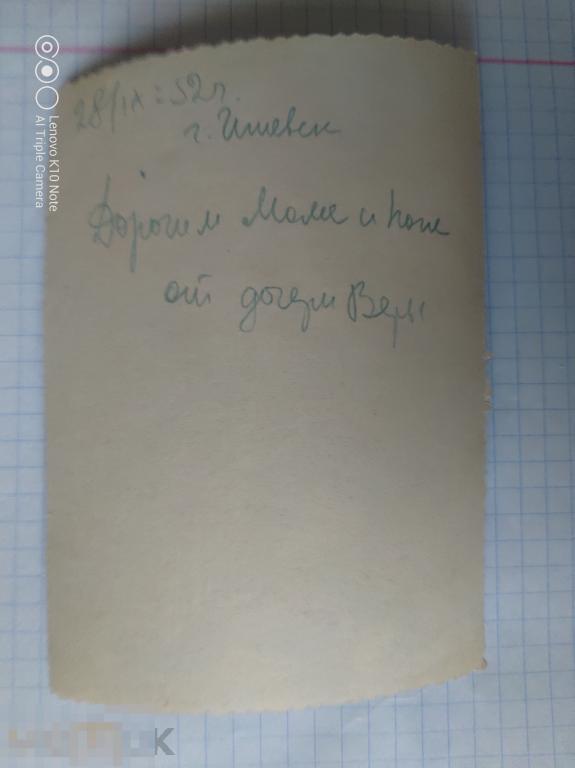 28/IX-52г.
г. Ижевск
Дорогим Маме и папе
от дочери Веры
Lenovo K10 Note
AI Triple Camera